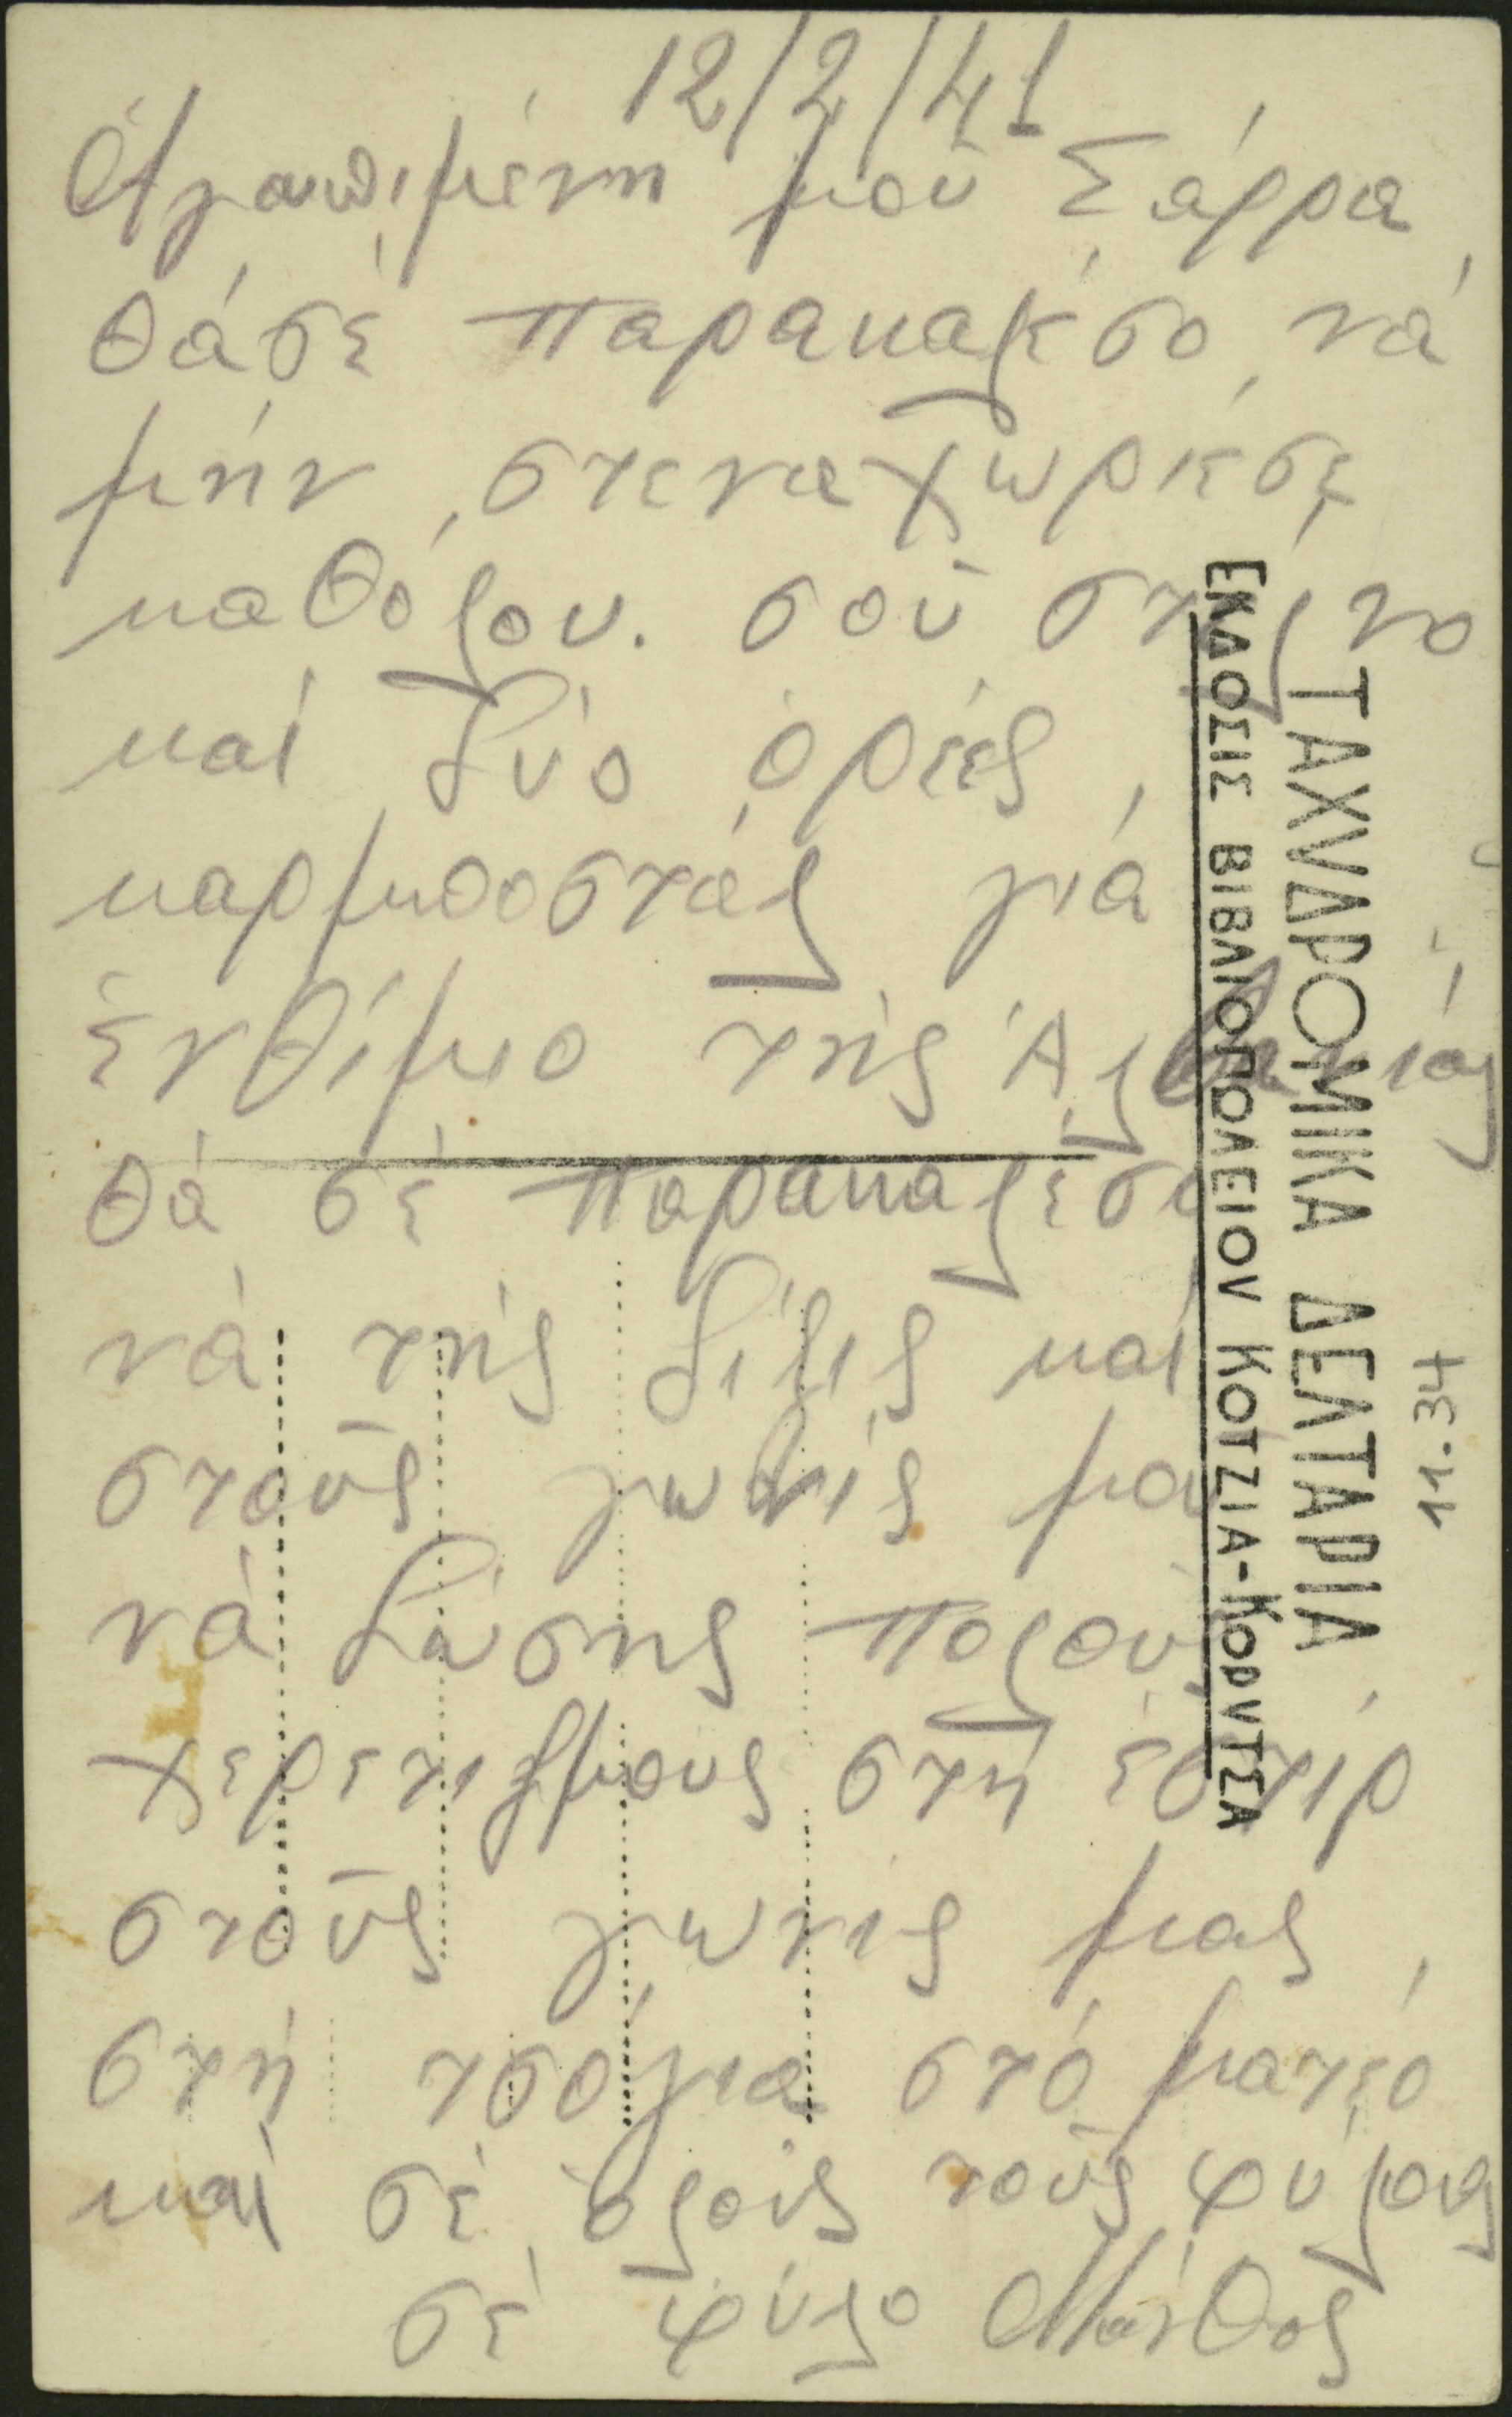 12/2/41
Ἀγαπιμένη μοῦ Σάρρα
θά σέ παρακαλέσο, νά
μήν στεναχωρέσε
καθόλου. σοῦ στέλνο
καί δύο ὀρέες
καρμποστάλ γιά
ἐνθίμιο τῆς Ἀλβανίας
θά σέ παρακαλέσο
νά τῆς δίξις καί
στοῦς γωνίς μου
νά δώσης πολούς
χερετιζμους στή ἐστίρ
στοῦς γωνις μας,
στή τσόγια στό ματέο
καί σέ ὄλους τοῦς φύλους
σέ φυλο Μάνθος
ΤΑΧΥΔΡΟΜΙΚΑ ΔΕΛΤΑΡΙΑ
ΕΚΔΟΣΙΣ ΒΙΒΛΙΟΠΩΛΕΙΟΥ ΚΟΤΖΙΑ-ΚΟΡΥΤΣΑ
11.34